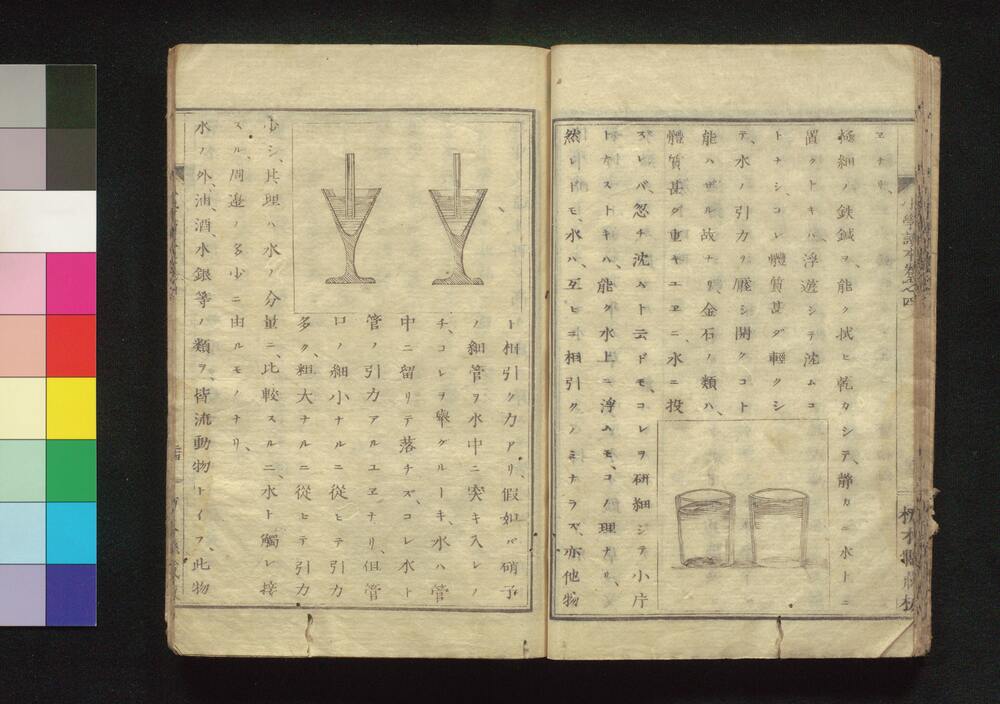 ヱナリ、
極細ノ鉄鍼ヲ、能ク拭ヒ乾カシテ、静カニ水上ニ
置クトキハ、浮遊シテ沈ムコ
トナシ、コレ體質甚ダ輕クシ
テ、水ノ引力ヲ壓シ開クコト
能ハザル故ナリ、金石ノ類ハ、
體質甚ダ重キユヱニ、水ニ投
スレバ、忽チ沈ムト云ドモ、コレヲ研細シテ小片
トナストキハ、能ク水上ニ浮ムモ、コノ理ナリ、
然レドモ、水ハ、互ヒニ相引クノミナラズ、亦他物
小學讀本巻之四
ト相引ク力アリ、假如バ硝子
ノ細管ヲ水中ニ突キ入レ
チ、コレヲ舉グルトキ、水ハ管
中ニ留リテ落チズ、コレ水ト
管ノ引力アルユヱナリ、但管
口ノ細小ナルニ從ヒテ引力
多ク、粗大ナルニ從ヒテ引力
少シ、其理ハ水ノ分量ニ、比較スルニ、水ト觸レ接
スル、周邉ノ多少ニ由ルモノナリ、
水ノ外、油、酒、水銀等ノ類ヲ、皆流動物トイフ、此物